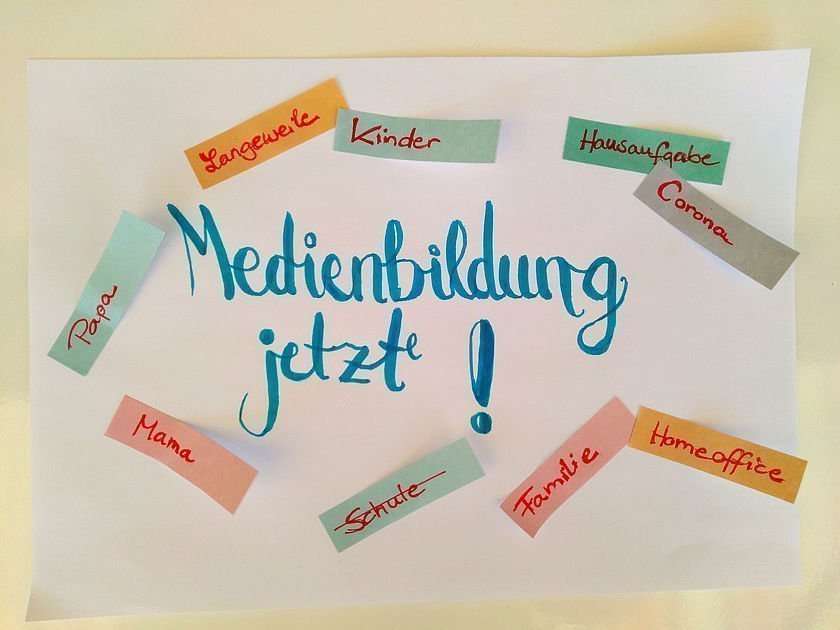 Langeweile
Kinder
Hausaufgabe
Corona
Medienbildung
jetzte !
Papa
Mama
Schule
Familie
Homeoffice